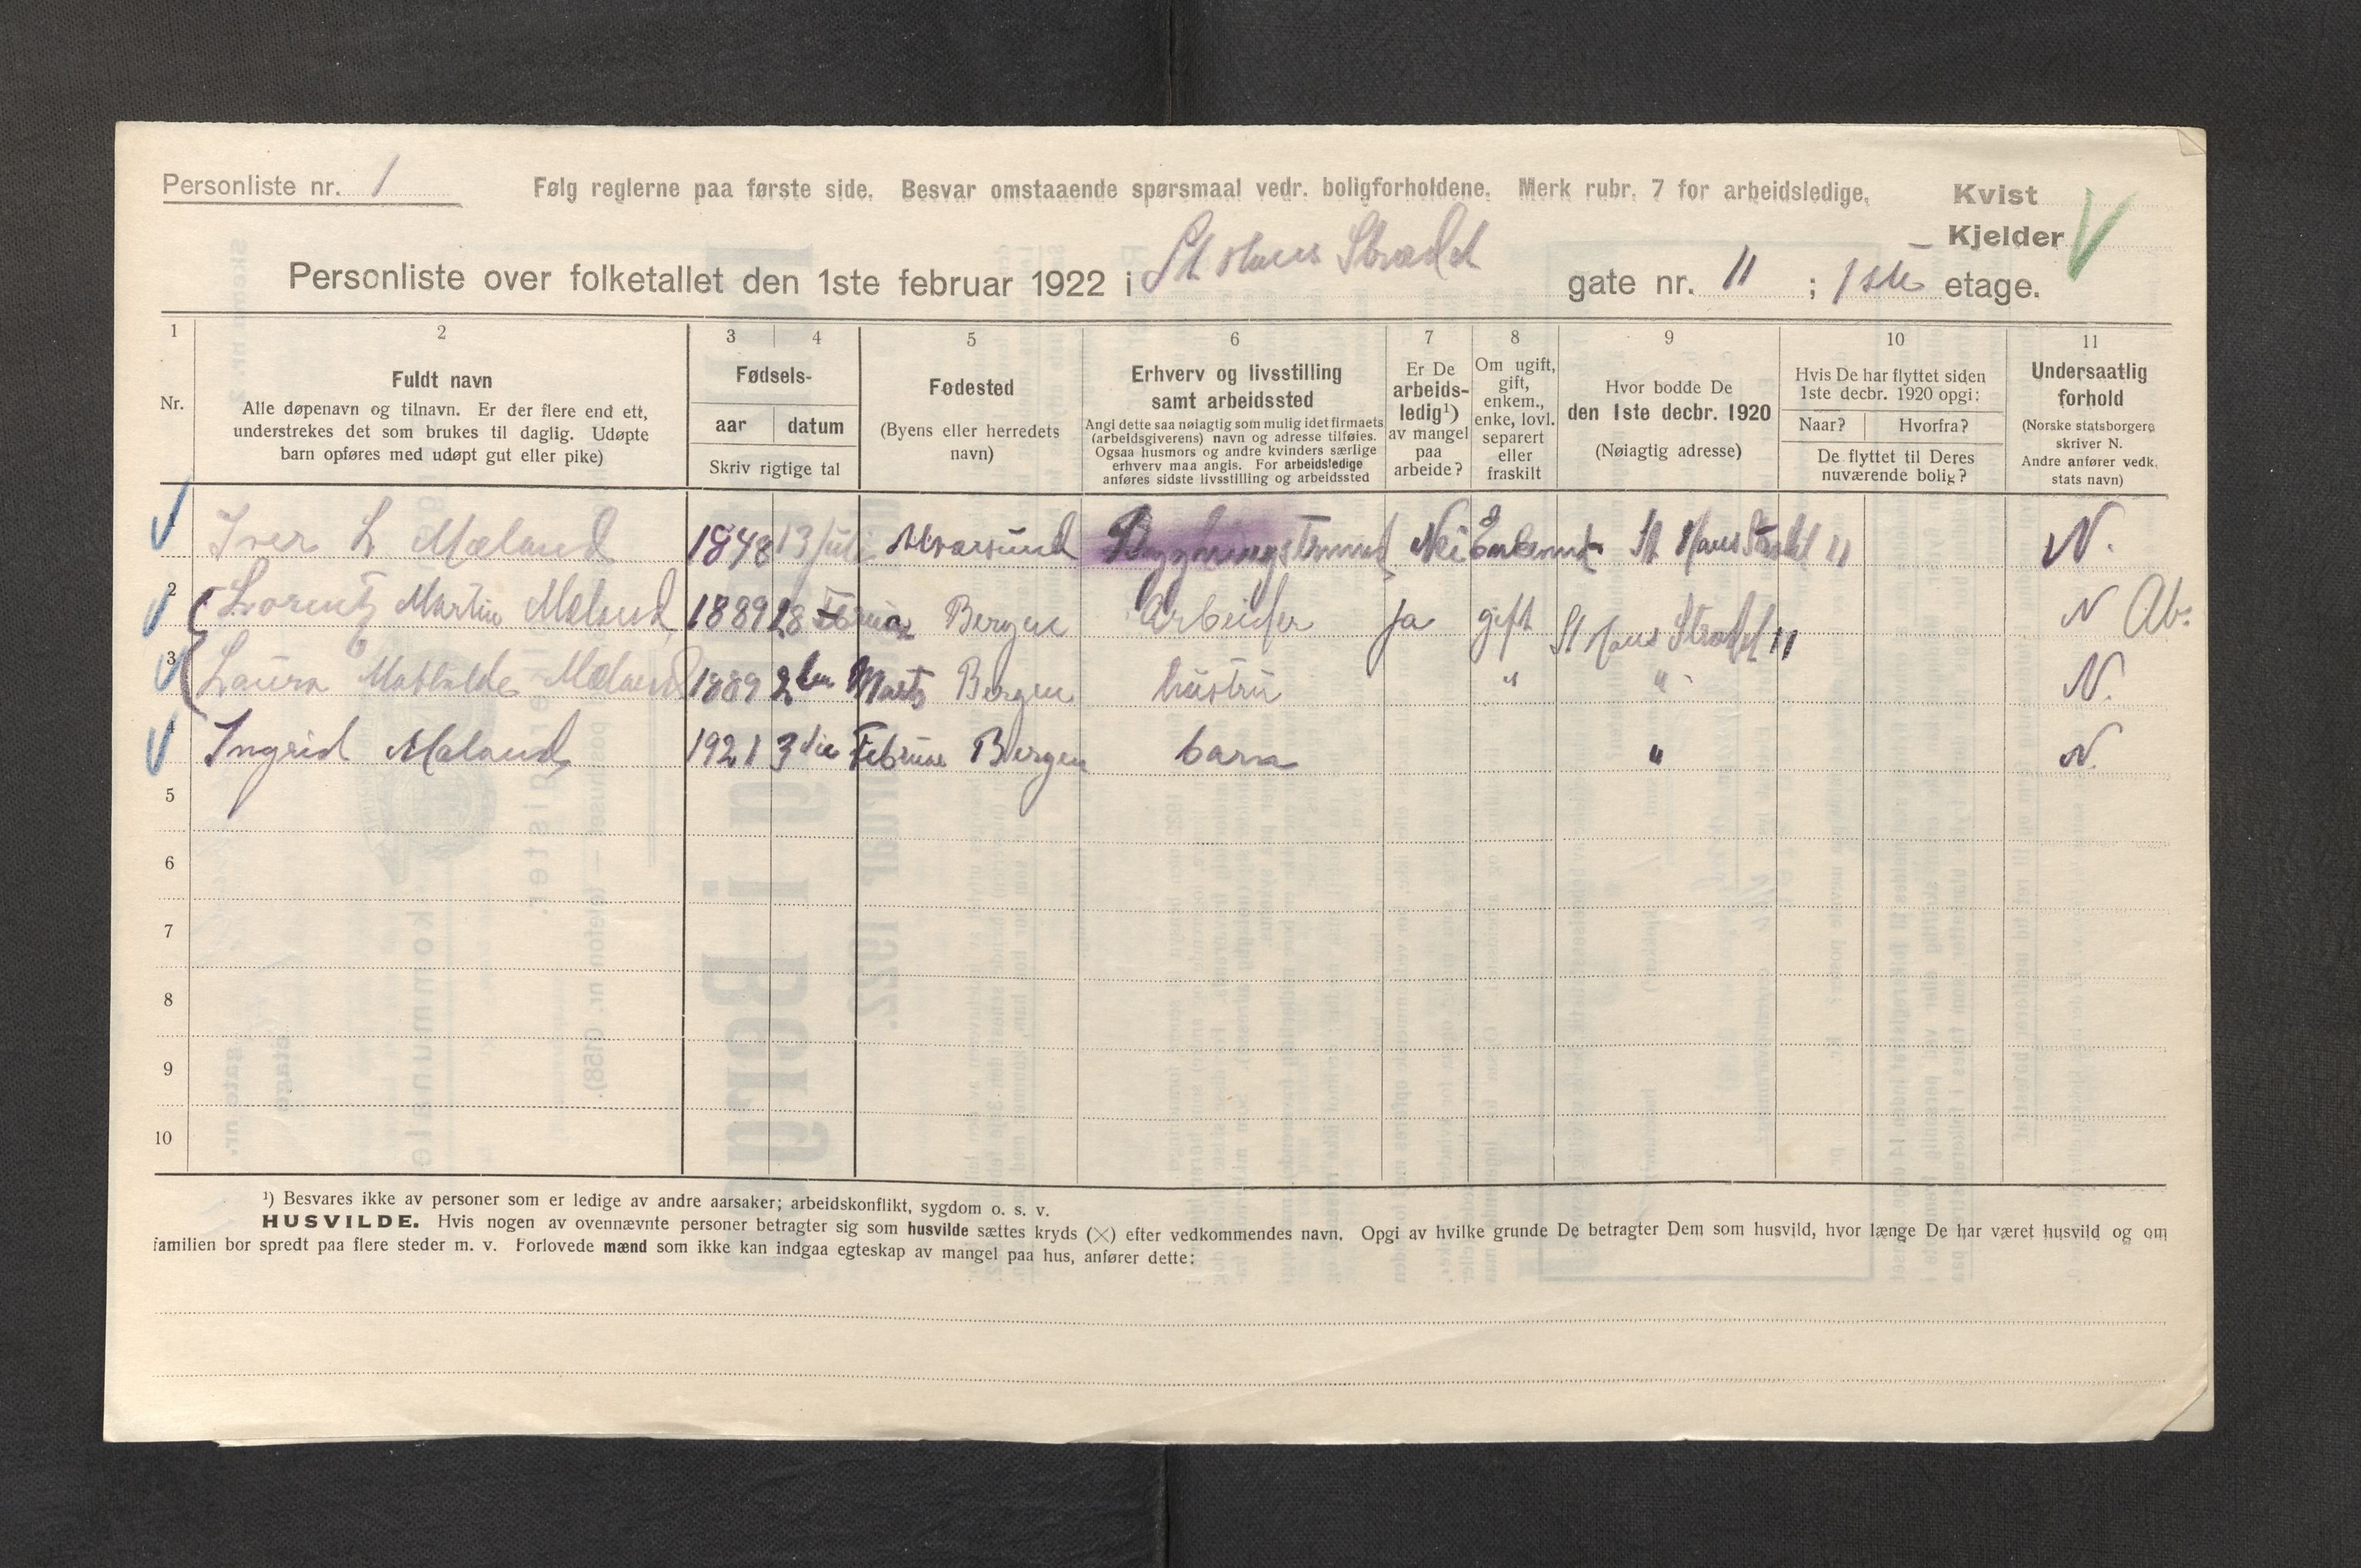 Personliste nr. 1
Følg reglerne paa første side. Besvar omstaaende spørsmaal vedr. boligforholdene. Merk rubr. 7 for arbeidsledige.
Kvist
Kjelder
Personliste over folketallet den 1ste februar 1922 i St Hans Strædet gate nr. 11 ; 1ste etage.
1 2 3 4 5 6 7 8 9 10 11
Nr.
Fuldt navn
Alle døpenavn og tilnavn. Er der flere end ett,
understrekes det som brukes til daglig. Udøpte
barn opføres med udøpt gut eller pike)
Fødsels-
aar datum
Skriv rigtige tal
Fødested
(Byens eller herredets
navn)
Erhverv og livsstilling
samt arbeidssted
Angi dette saa nøiagtig som mulig idet firmaets
(arbeidsgiverens) navn og adresse tilføies.
Ogsaa husmors og andre kvinders særlige
erhverv maa angis. For arbeidsledige
anføres sidste livsstilling og arbeidssted
Er De
arbeids-
ledig¹)
av mangel
paa
arbeide?
Om ugift,
gift,
enkem.,
enke, lovl.
separert
eller
fraskilt
Hvor bodde De
den 1ste decbr. 1920
(Nøiagtig adresse)
Hvis De har flyttet siden
1ste decbr. 1920 opgi:
Naar? Hvorfra?
De flyttet til Deres
nuværende bolig?
Undersaatlig
forhold
(Norske statsborgere
skriver N.
Andre anfører vedk.
stats navn)
Iver L Mæland 1848 13 juli Bygningstømmd Nei Enkemd St Hans Strædet 11 N.
2 Lorentz Martin Mæland 1889 28 Bergen Arbeider ja gift St Hans Strædet 11 N Ab.
3 Laura Mathilde Mæland 1889 2den Marts Bergen hustru " " N.
Ingrid Mæland 1921 3die Februar Bergen barn " N.
5
6
7
8
9
10
¹) Besvares ikke av personer som er ledige av andre aarsaker; arbeidskonflikt, sygdom o. s. v.
HUSVILDE. Hvis nogen av ovennævnte personer betragter sig som husvilde sættes kryds (×) efter vedkommendes navn. Opgi av hvilke grunde De betragter Dem som husvild, hvor længe De har været husvild og om
familien bor spredt paa flere steder m. v. Forlovede mænd som ikke kan indgaa egteskap av mangel paa hus, anfører dette: